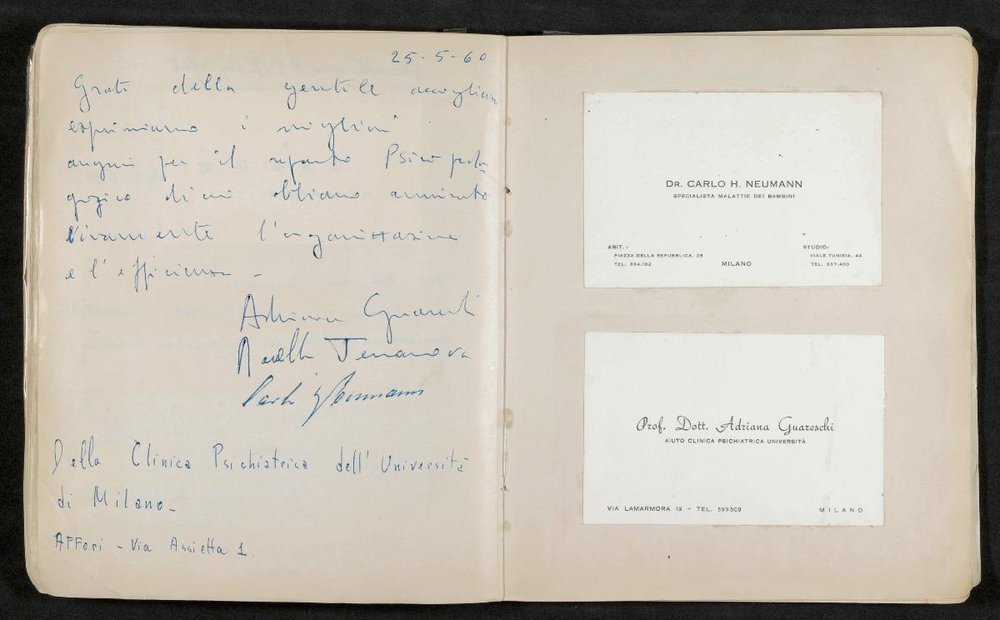 25-5-60
Grati della gentile accoglienza
esprimiamo i migliori
auguri per il reparto Psico peda
gogico di cui abbiamo ammirato
vivamente l'organizzazione
e l'efficienza -
Adriana Guareschi
Terranova
Carlo H Neumann
Della Clinica Psichiatrica dell'Università
di Milano -
AFFori - Via Assietta 1
DR. CARLO H. NEUMANN
SPECIALISTA MALATTIE DEI BAMBINI
ABIT.: STUDIO:
PIAZZA DELLA REPUBBLICA, 28 VIALE TUNISIA, 44
TEL. 664.192 MILANO TEL. 637.400
Prof. Dott. Adriana Guareschi
AIUTO CLINICA PSICHIATRICA UNIVERSITÀ
VIA LAMARMORA 19 - TEL. 593509 MILANO